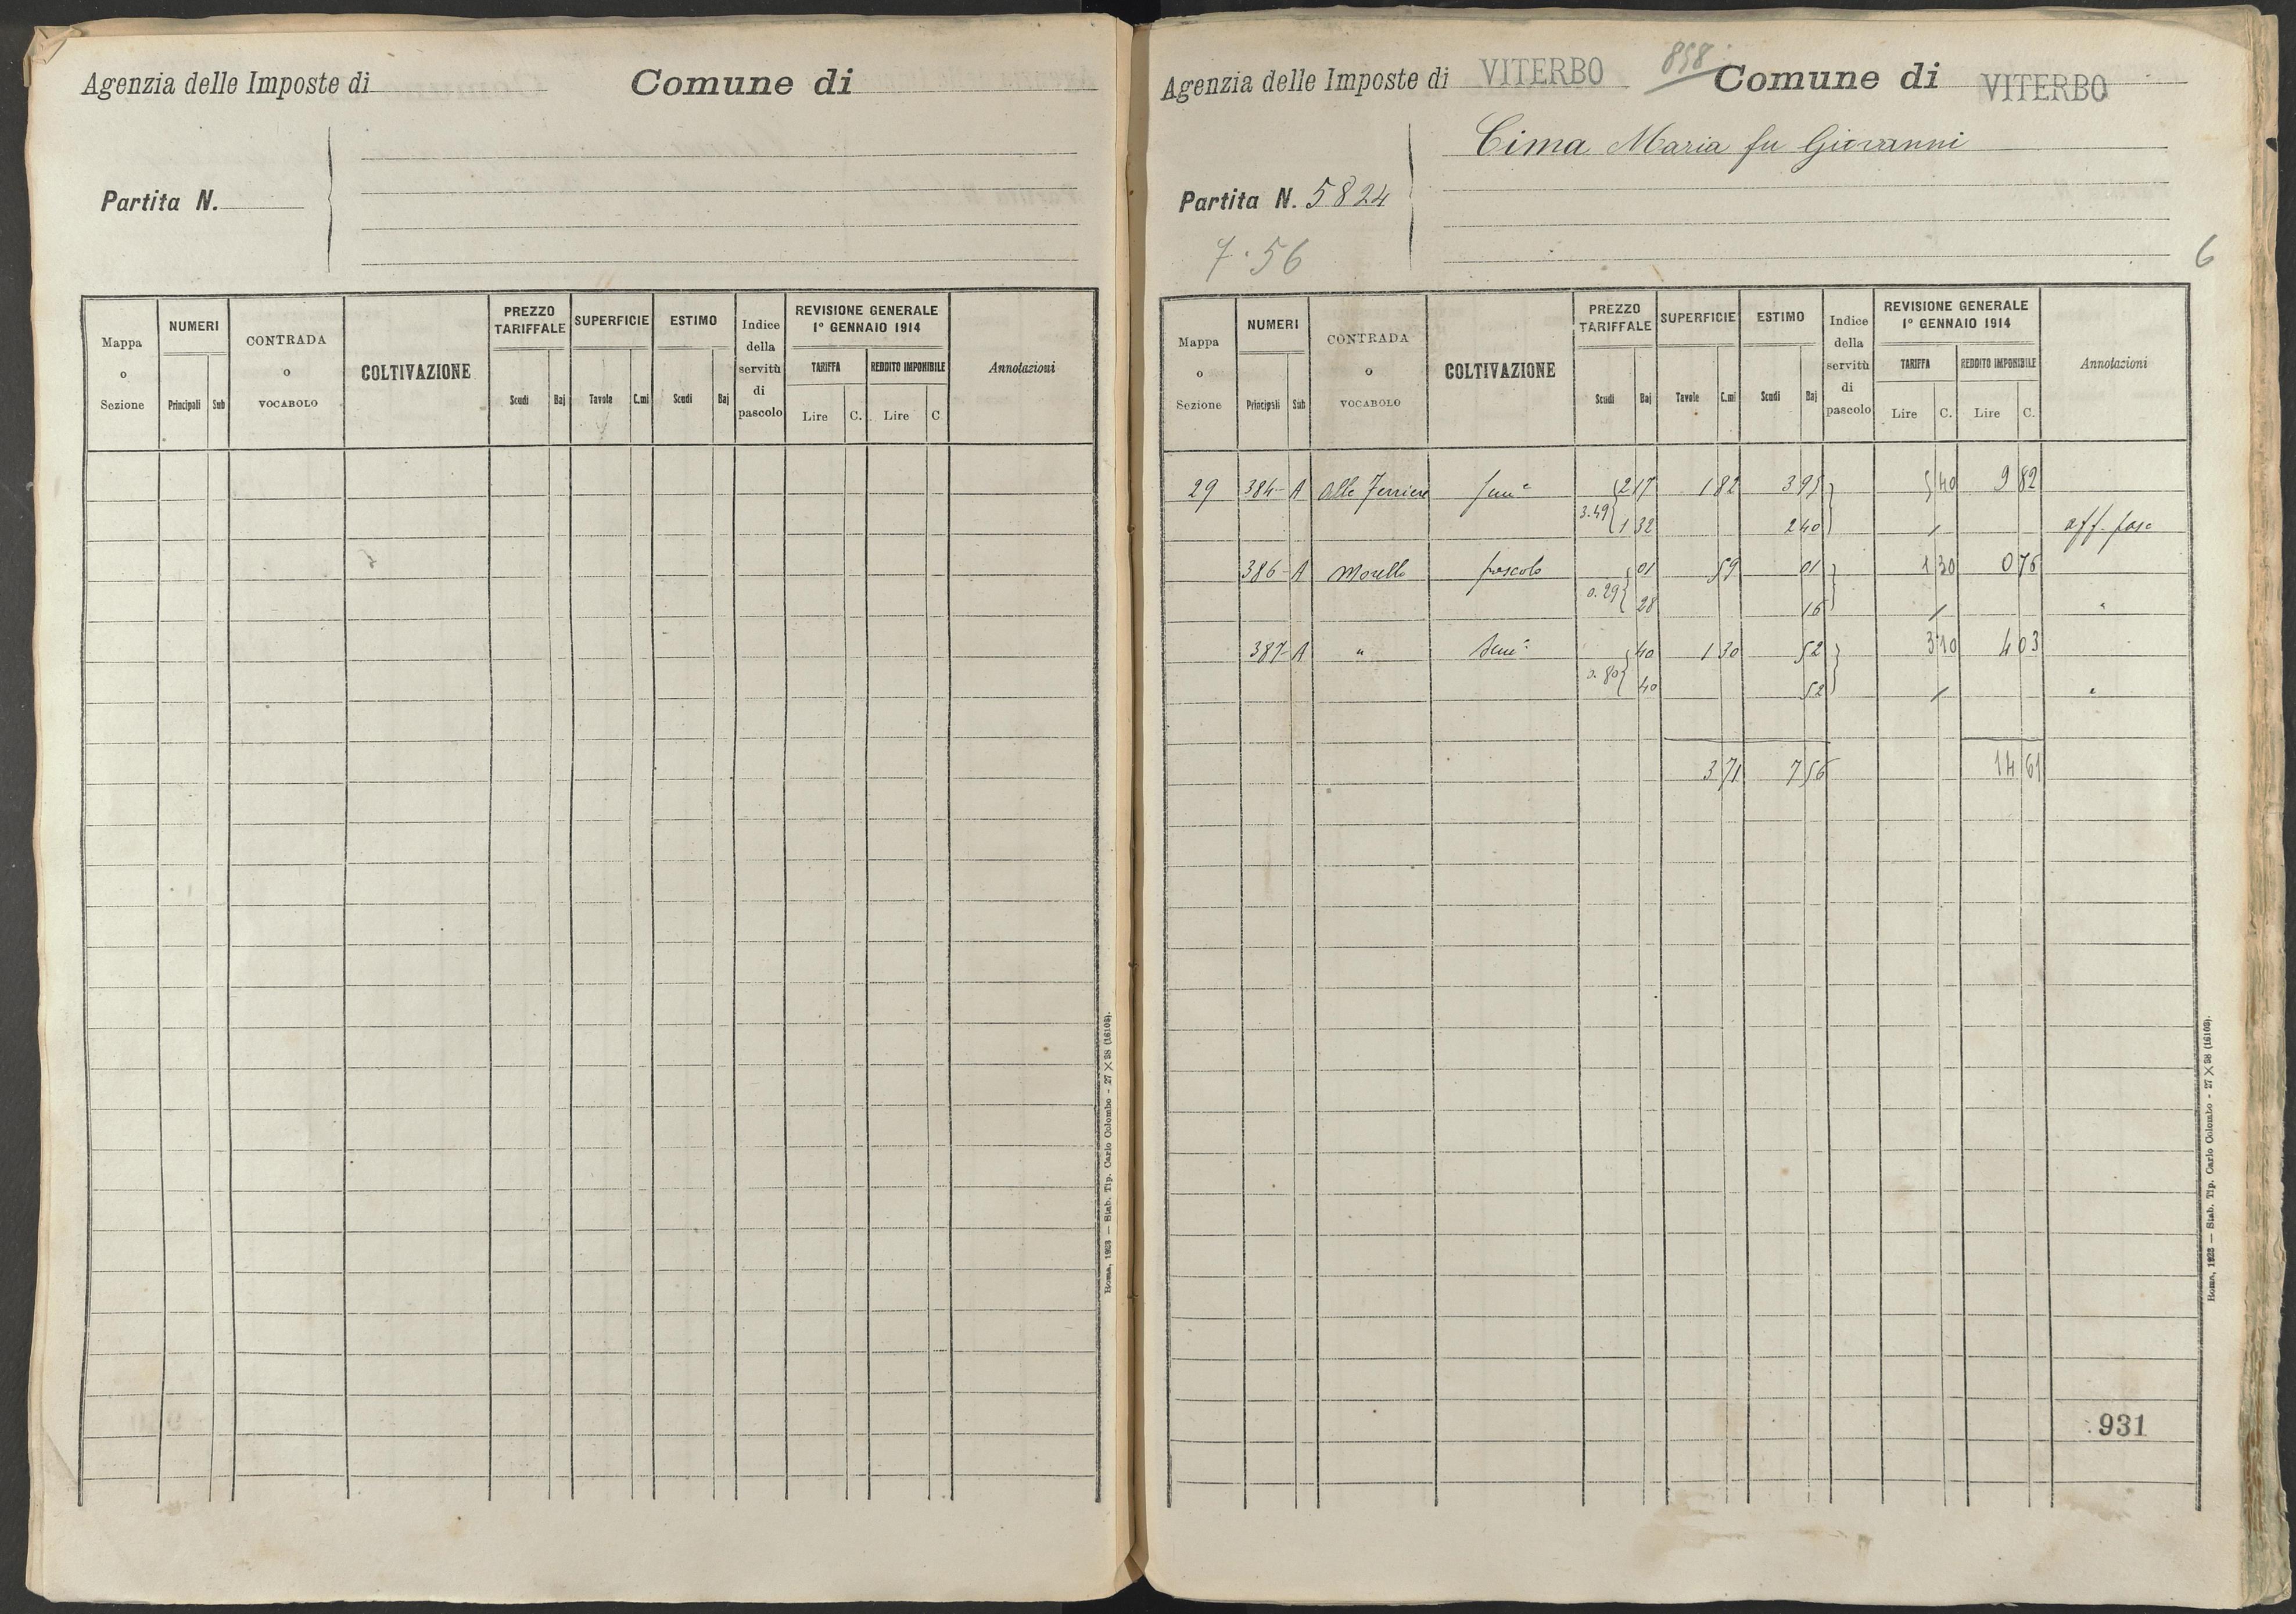 Agenzia delle Imposte di Comune di
Partita N.
Mappa o Sezione NUMERI Principali Sub CONTRADA o VOCABOLO COLTIVAZIONE PREZZO TARIFFALE Scudi Baj SUPERFICIE Tavole C.mi ESTIMO Scudi Baj Indice della servitù di pascolo REVISIONE GENERALE 1° GENNAIO 1914 TARIFFA Lire C. REDDITO IMPONIBILE Lire C Annotazioni
Roma, 1923 — Stab. Tip. Carlo Colombo - 27 × 38 (16103).
898
Agenzia delle Imposte di VITERBO Comune di VITERBO
Cima Maria fu Giovanni
Partita N. 5824
7.56
6
Mappa o Sezione NUMERI Principali Sub CONTRADA o VOCABOLO COLTIVAZIONE PREZZO TARIFFALE Scudi Baj SUPERFICIE Tavole C.mi ESTIMO Scudi Baj Indice della servitù di pascolo REVISIONE GENERALE 1° GENNAIO 1914 TARIFFA Lire C. REDDITO IMPONIBILE Lire C. Annotazioni
29 384 A Alle Ferriere Sem° 2 17 1 82 3 95 5 40 9 82
3.49 1 32 2 40 / aff. pasc
386 A Morello pascolo 01 59 01 1 30 0 76
0.29 28 16 / "
387 A " Sem° 40 1 30 52 3 10 4 03
0.80 40 52 / "
3 71 7 56 14 61
931
Roma, 1923 — Stab. Tip. Carlo Colombo - 27 × 38 (16103).